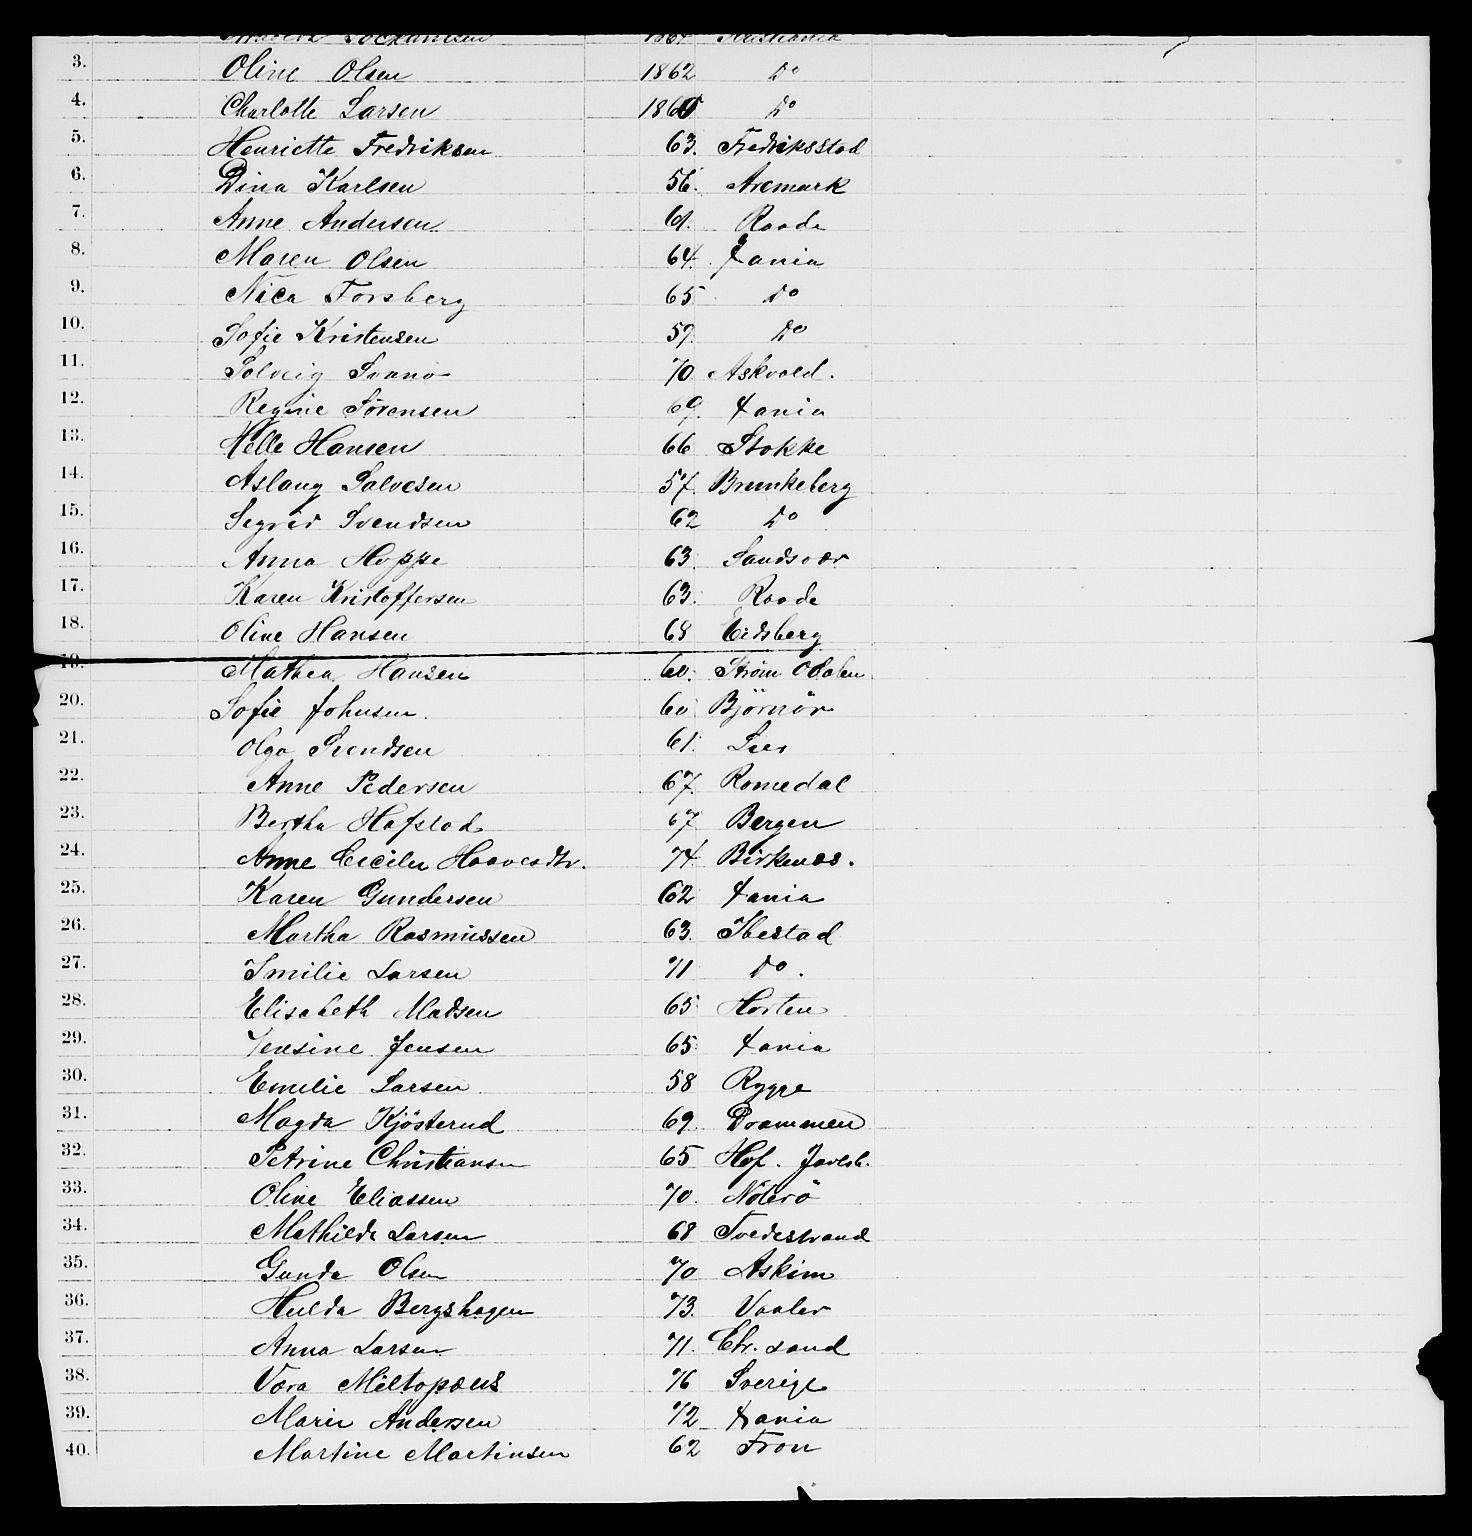 3. Oline Olsen 1862 Do
4. Charlotte Larsen 1860 Do
5. Henriette Fredriksen 63. Fredriksstad
6. Dina Karlsen 56. Aremark
7. Anne Andersen 61. Raade
8. Maren Olsen 64. Xania
9. Nica Forsberg 65 Do
10. Sofie Kristensen 59. Do
11. Solveig Svanø 70 Askvold.
12. Regine Sørensen 69. Xania
13. Helle Hansen 66 Stokke
14. Aslaug Salvesen 57. Brunkeberg
15. Sigrid Svendsen 62 Do
16. Anna Hoppe 63. Sandsvær
17. Karen Kristoffersen 63. Raade
18. Oline Hansen 68 Eidsberg
19. Mathea Hansen 60. Strøm Odalen
20. Sofie Johnsen. 60 Bjørnør
21. Olga Svendsen 61.
22. Anne Pedersen 67. Romedal
23. Bertha Hafstad 67 Bergen
24. Anne Cecilie Haavesdtr. 74. Birkenæs.
25. Karen Gundersen 62 Xania
26. Martha Rasmussen 63. Ibestad
27. Imilie Larsen 71 Do.
28. Elisabeth Madsen 65 Horten
29. Jensine Jensen 65. Xania
30. Emilie Larsen 58 Rygge
31. Magda Kjösterud 69. Drammen
32. Petrine Christiansen 65 Hof. Jarlsb.
33. Oline Eliassen 70. Nøterö
34. Mathilde Larsen 68 Tvedestrand
35. Gunda Olsen 70 Askim
36. Hulda Bergshagen 73. Vaaler
37. Anna Larsen 71. Chr. sand
38. Væra Miltopæus 76 Sverige
39. Marie Andersen 72 Xania
40. Martine Martinsen 62 Fron